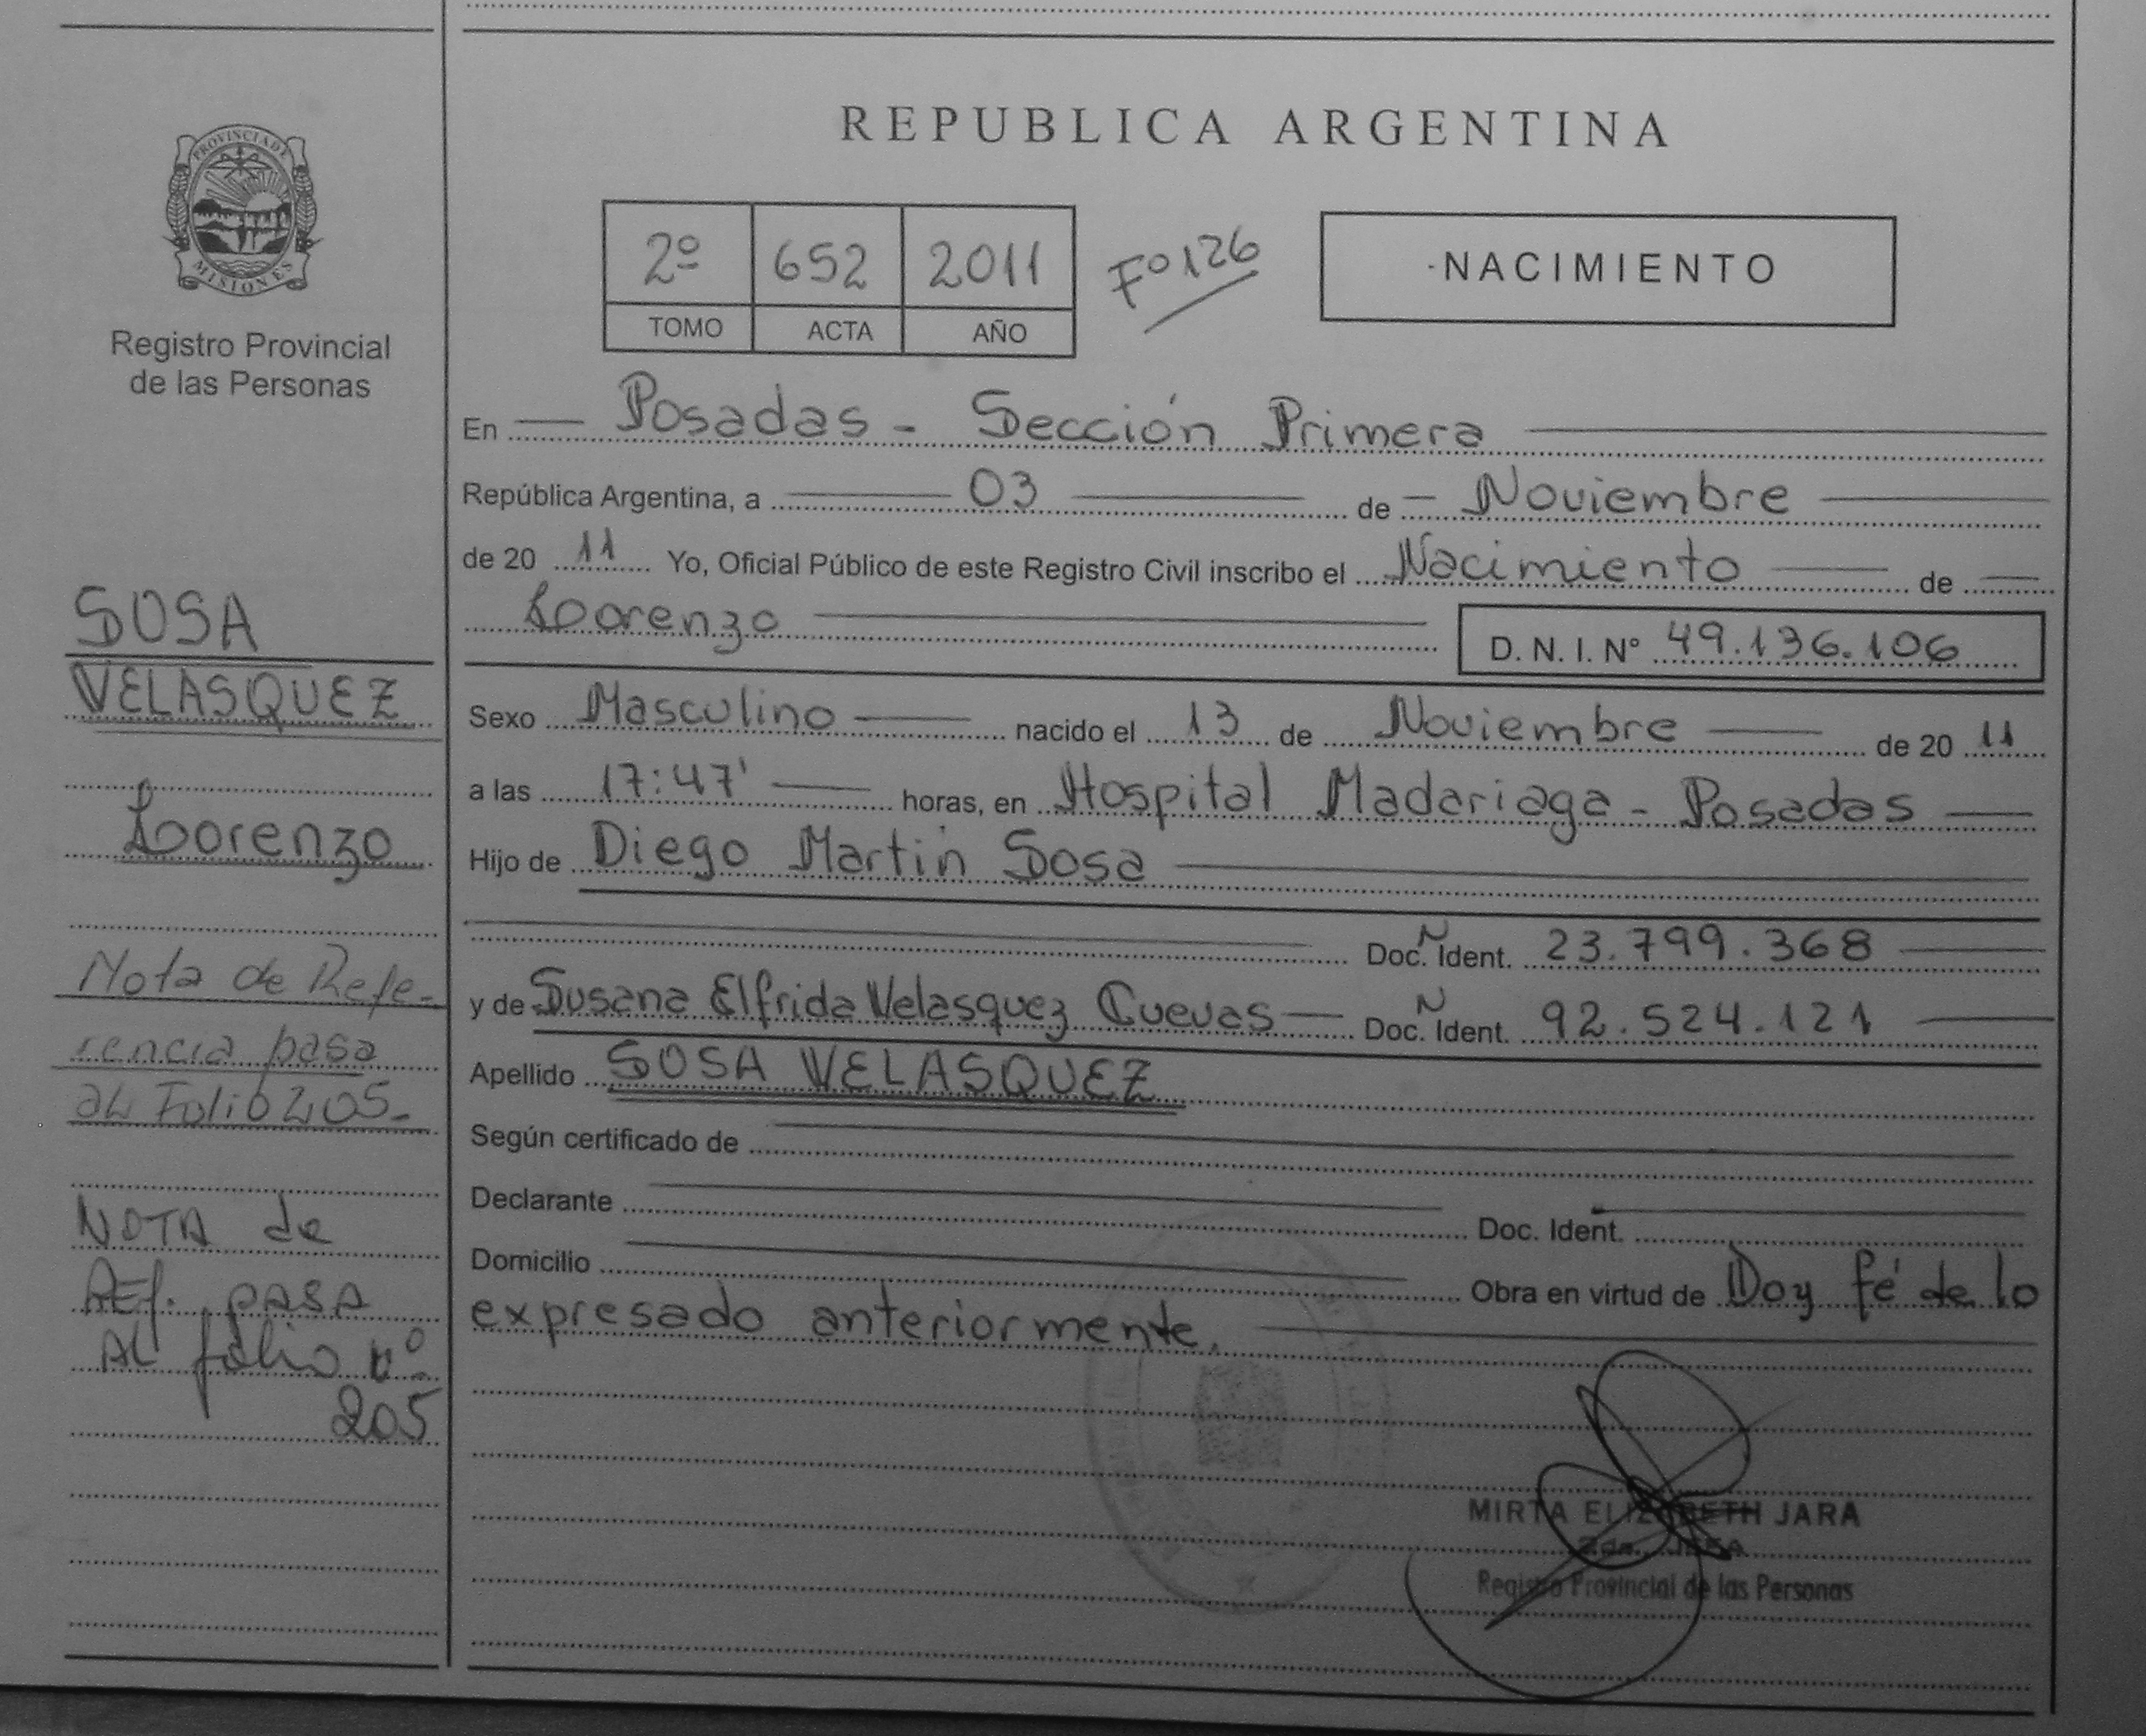 PROVINCIA DE
MISIONES
Registro Provincial
de las Personas
SOSA
VELASQUEZ
Lorenzo
Nota de Refe-
rencia pasa
al Folio 205-
NOTA de
REf. PASA
AL folio nº
205
REPUBLICA ARGENTINA
2º 652 2011 Fº 126
TOMO ACTA AÑO
NACIMIENTO
En Posadas - Sección Primera
República Argentina, a 03 de Noviembre
de 20 11 Yo, Oficial Público de este Registro Civil inscribo el Nacimiento de
Lorenzo D. N. I. Nº 49.136.106
Sexo Masculino nacido el 13 de Noviembre de 20 11
a las 17:47' horas, en Hospital Madariaga - Posadas
Hijo de Diego Martin Sosa
Doc. N Ident. 23.799.368
y de Susana Elfrida Velasquez Cuevas Doc. N Ident. 92.524.121
Apellido SOSA VELASQUEZ
Según certificado de
Declarante Doc. Ident.
Domicilio Obra en virtud de Doy fé de lo
expresado anteriormente.
MIRTA ELIZABETH JARA
Registro Provincial de las Personas